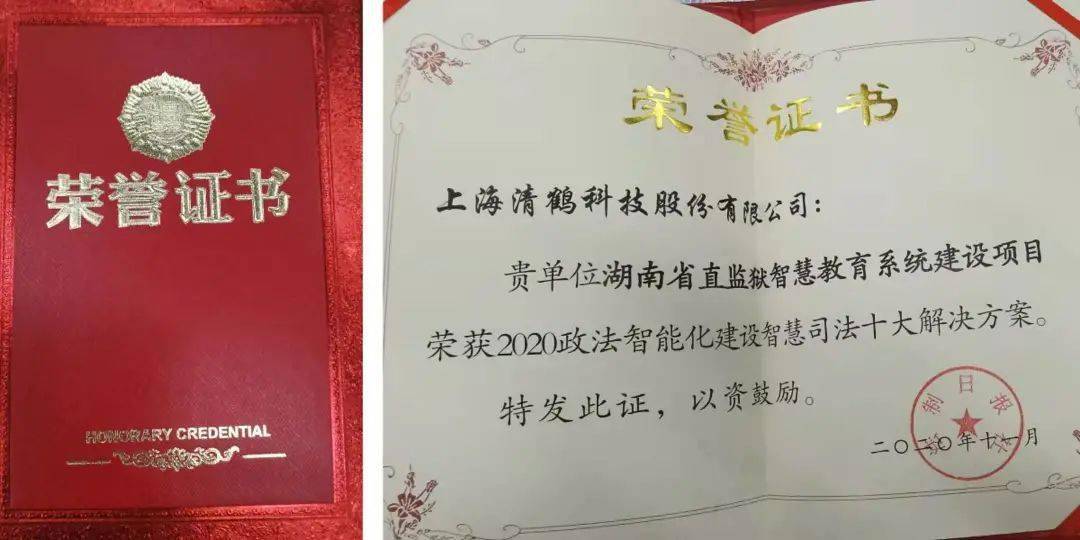 荣誉证书
HONORARY CREDENTIAL
荣誉证书
上海清鹤科技股份有限公司：
贵单位湖南省直监狱智慧教育系统建设项目
荣获2020政法智能化建设智慧司法十大解决方案。
特发此证，以资鼓励。
法制日报社
二〇二〇年十一月